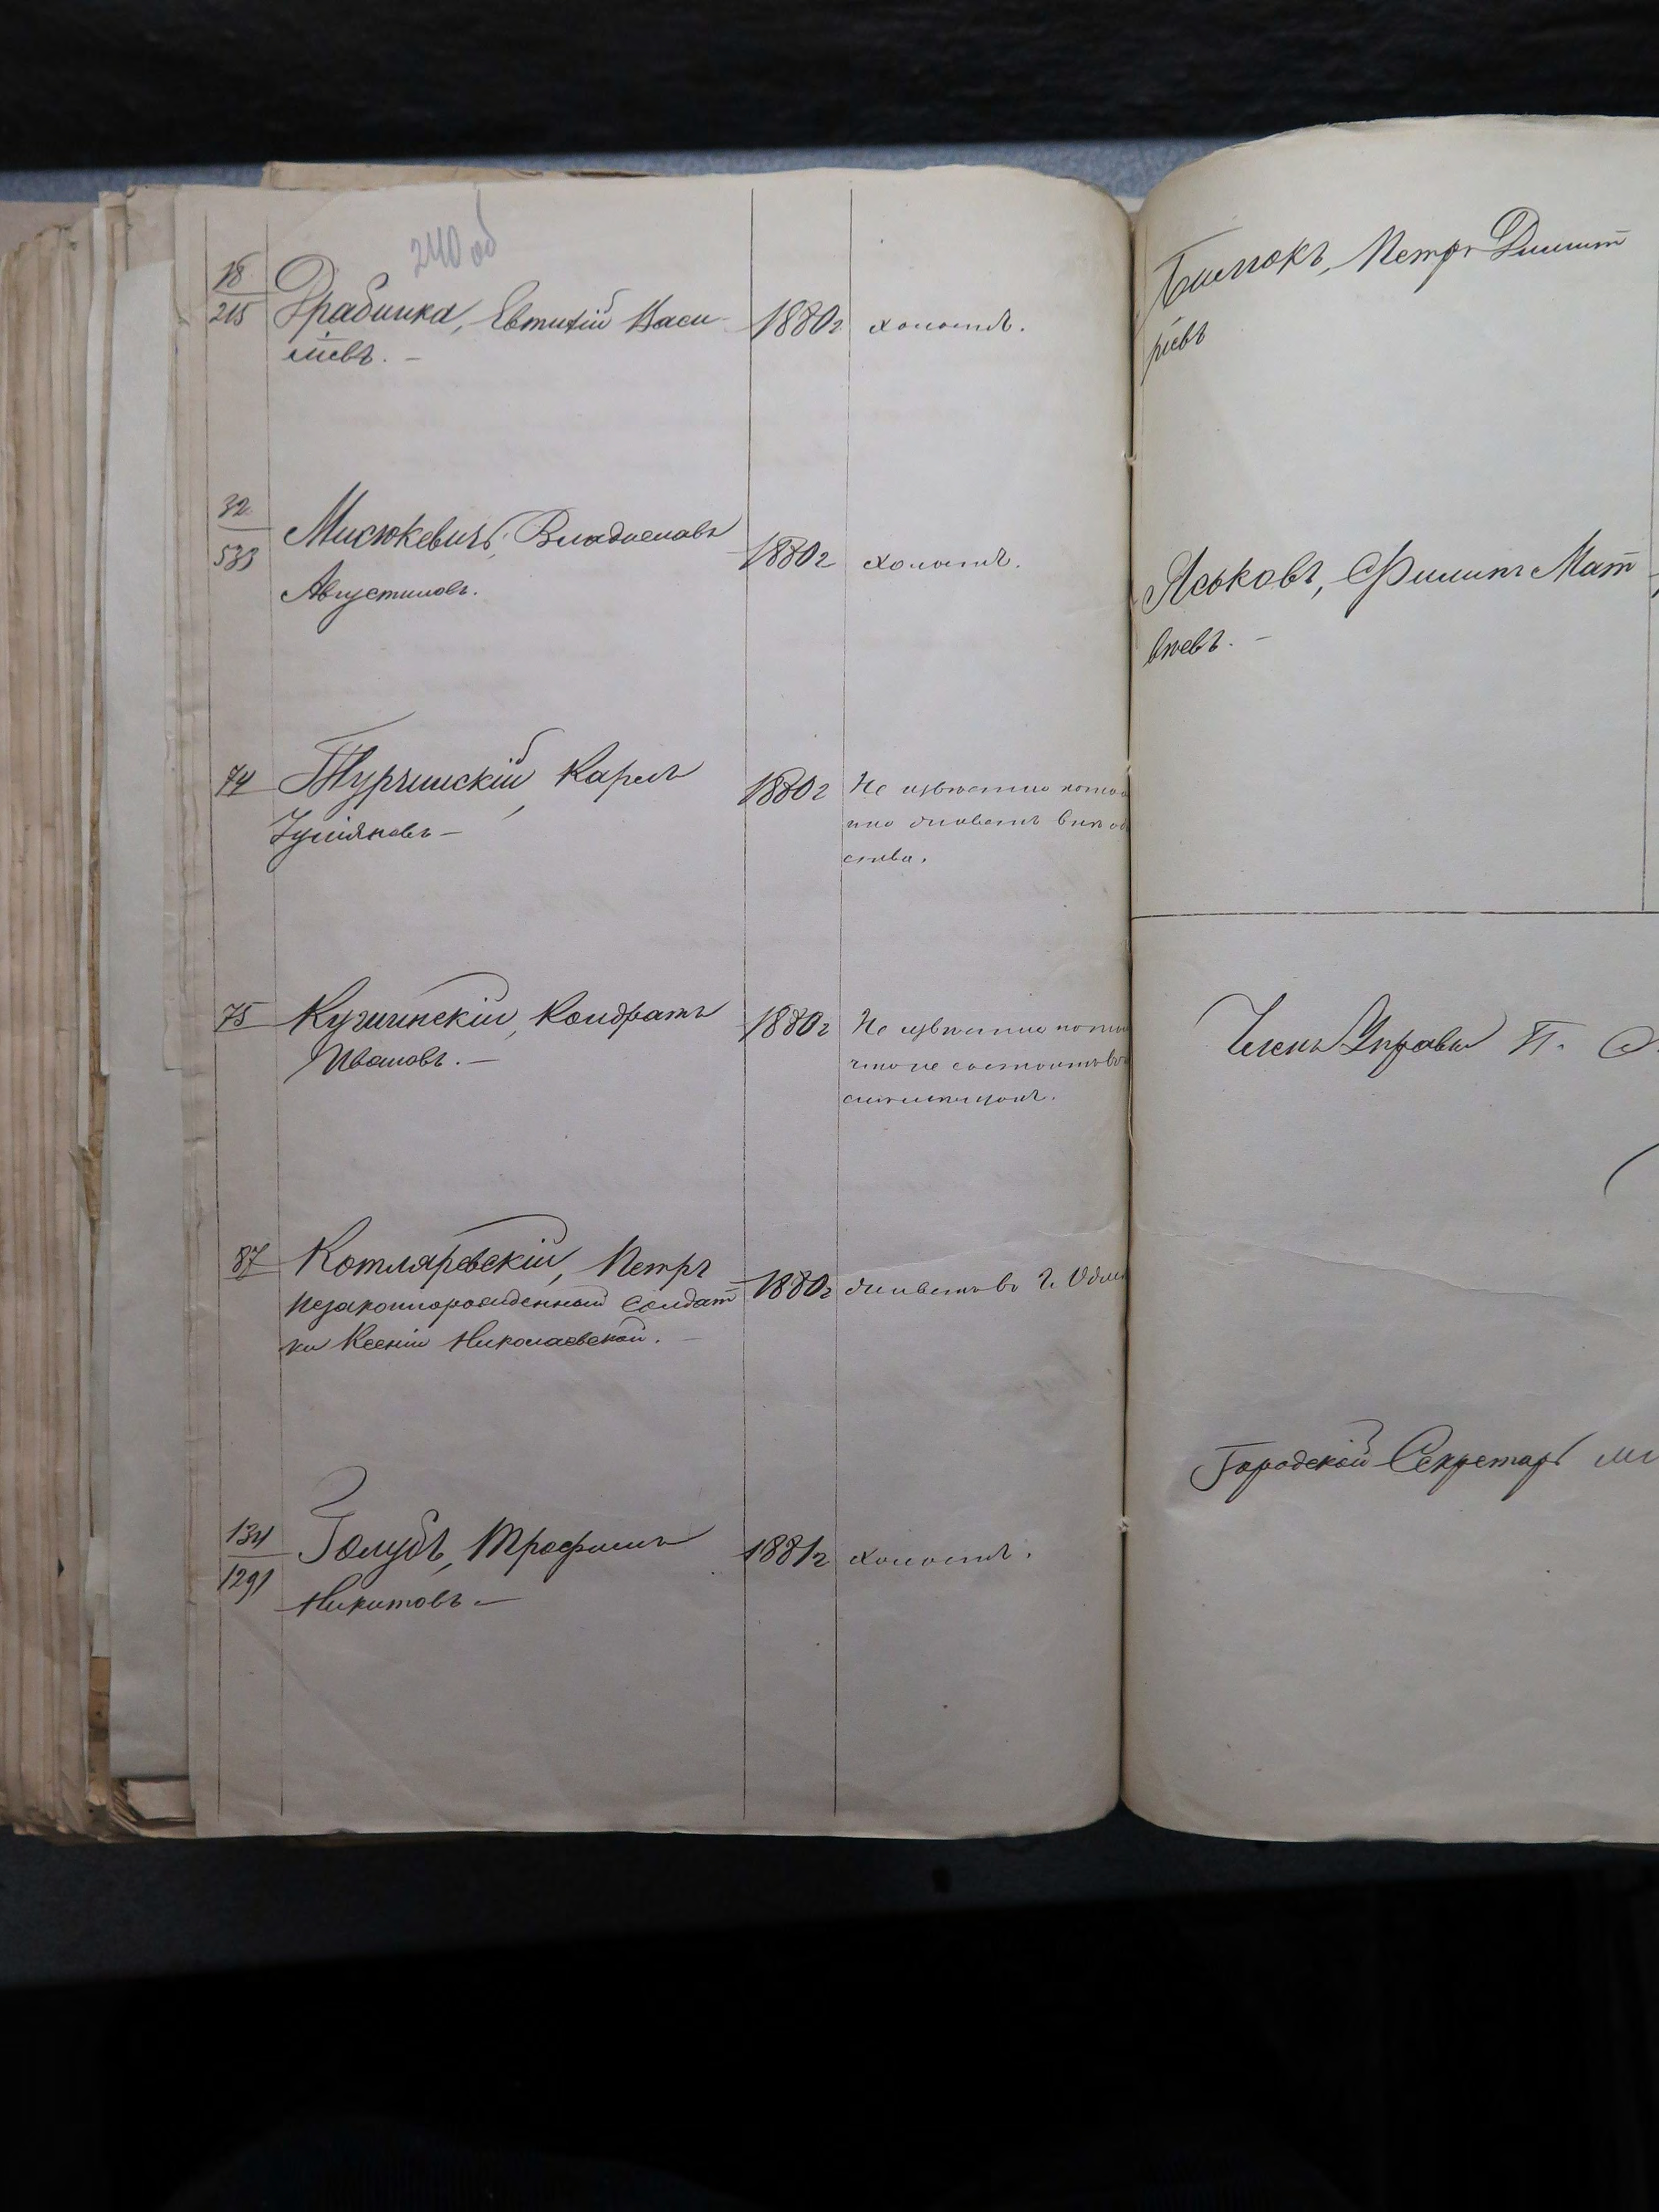 240 об
18
215
Драбинка, Евтихій Васи-
ліевъ. —
1880 г
холостъ.
32
533
Мисюкевичъ, Владиславъ
Августиновъ.
1880 г
холостъ.
74
Турчинскій, Карлъ
Юліяновъ —
1880 г
Не извѣстно потом
что
ства.
75
Кучинскій, Кондратъ
Ивановъ. —
1880 г
Не извѣстно потом
что не состоитъ во
87
Котляревскій, Петръ
незаконнорожденный солдат
ки Ксеніи Николаевской. —
1880 г
живетъ въ г. Одес
134
1291
Голубъ, Трофимъ
Никитовъ —
1881 г
холостъ.
Петръ Димит
ріевъ
Яськовъ, Филипъ Мат
вѣевъ. —
Членъ Управы П.
Городской Секретарь